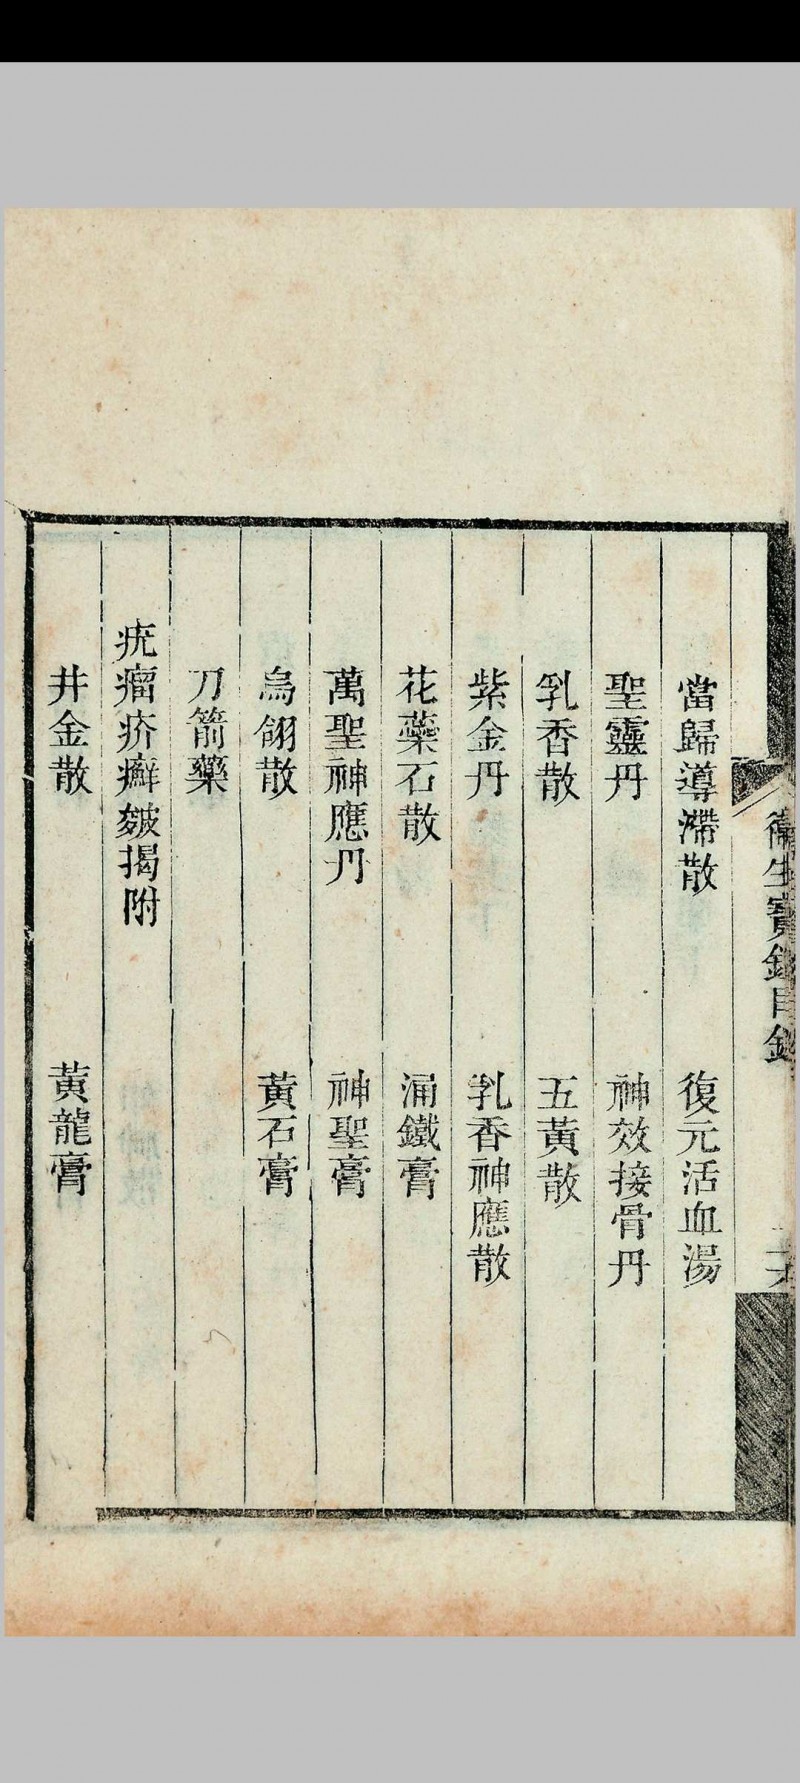 衛生寶鑑目錄
當歸導滯散　復元活血湯
聖靈丹　神效接骨丹
乳香散　五黃散
紫金丹　乳香神應散
花藥石散　湧鐵膏
萬聖神應丹　神聖膏
烏翎散　黃石膏
刀箭藥
疣瘤疥癬皴揭附
井金散　黃龍膏